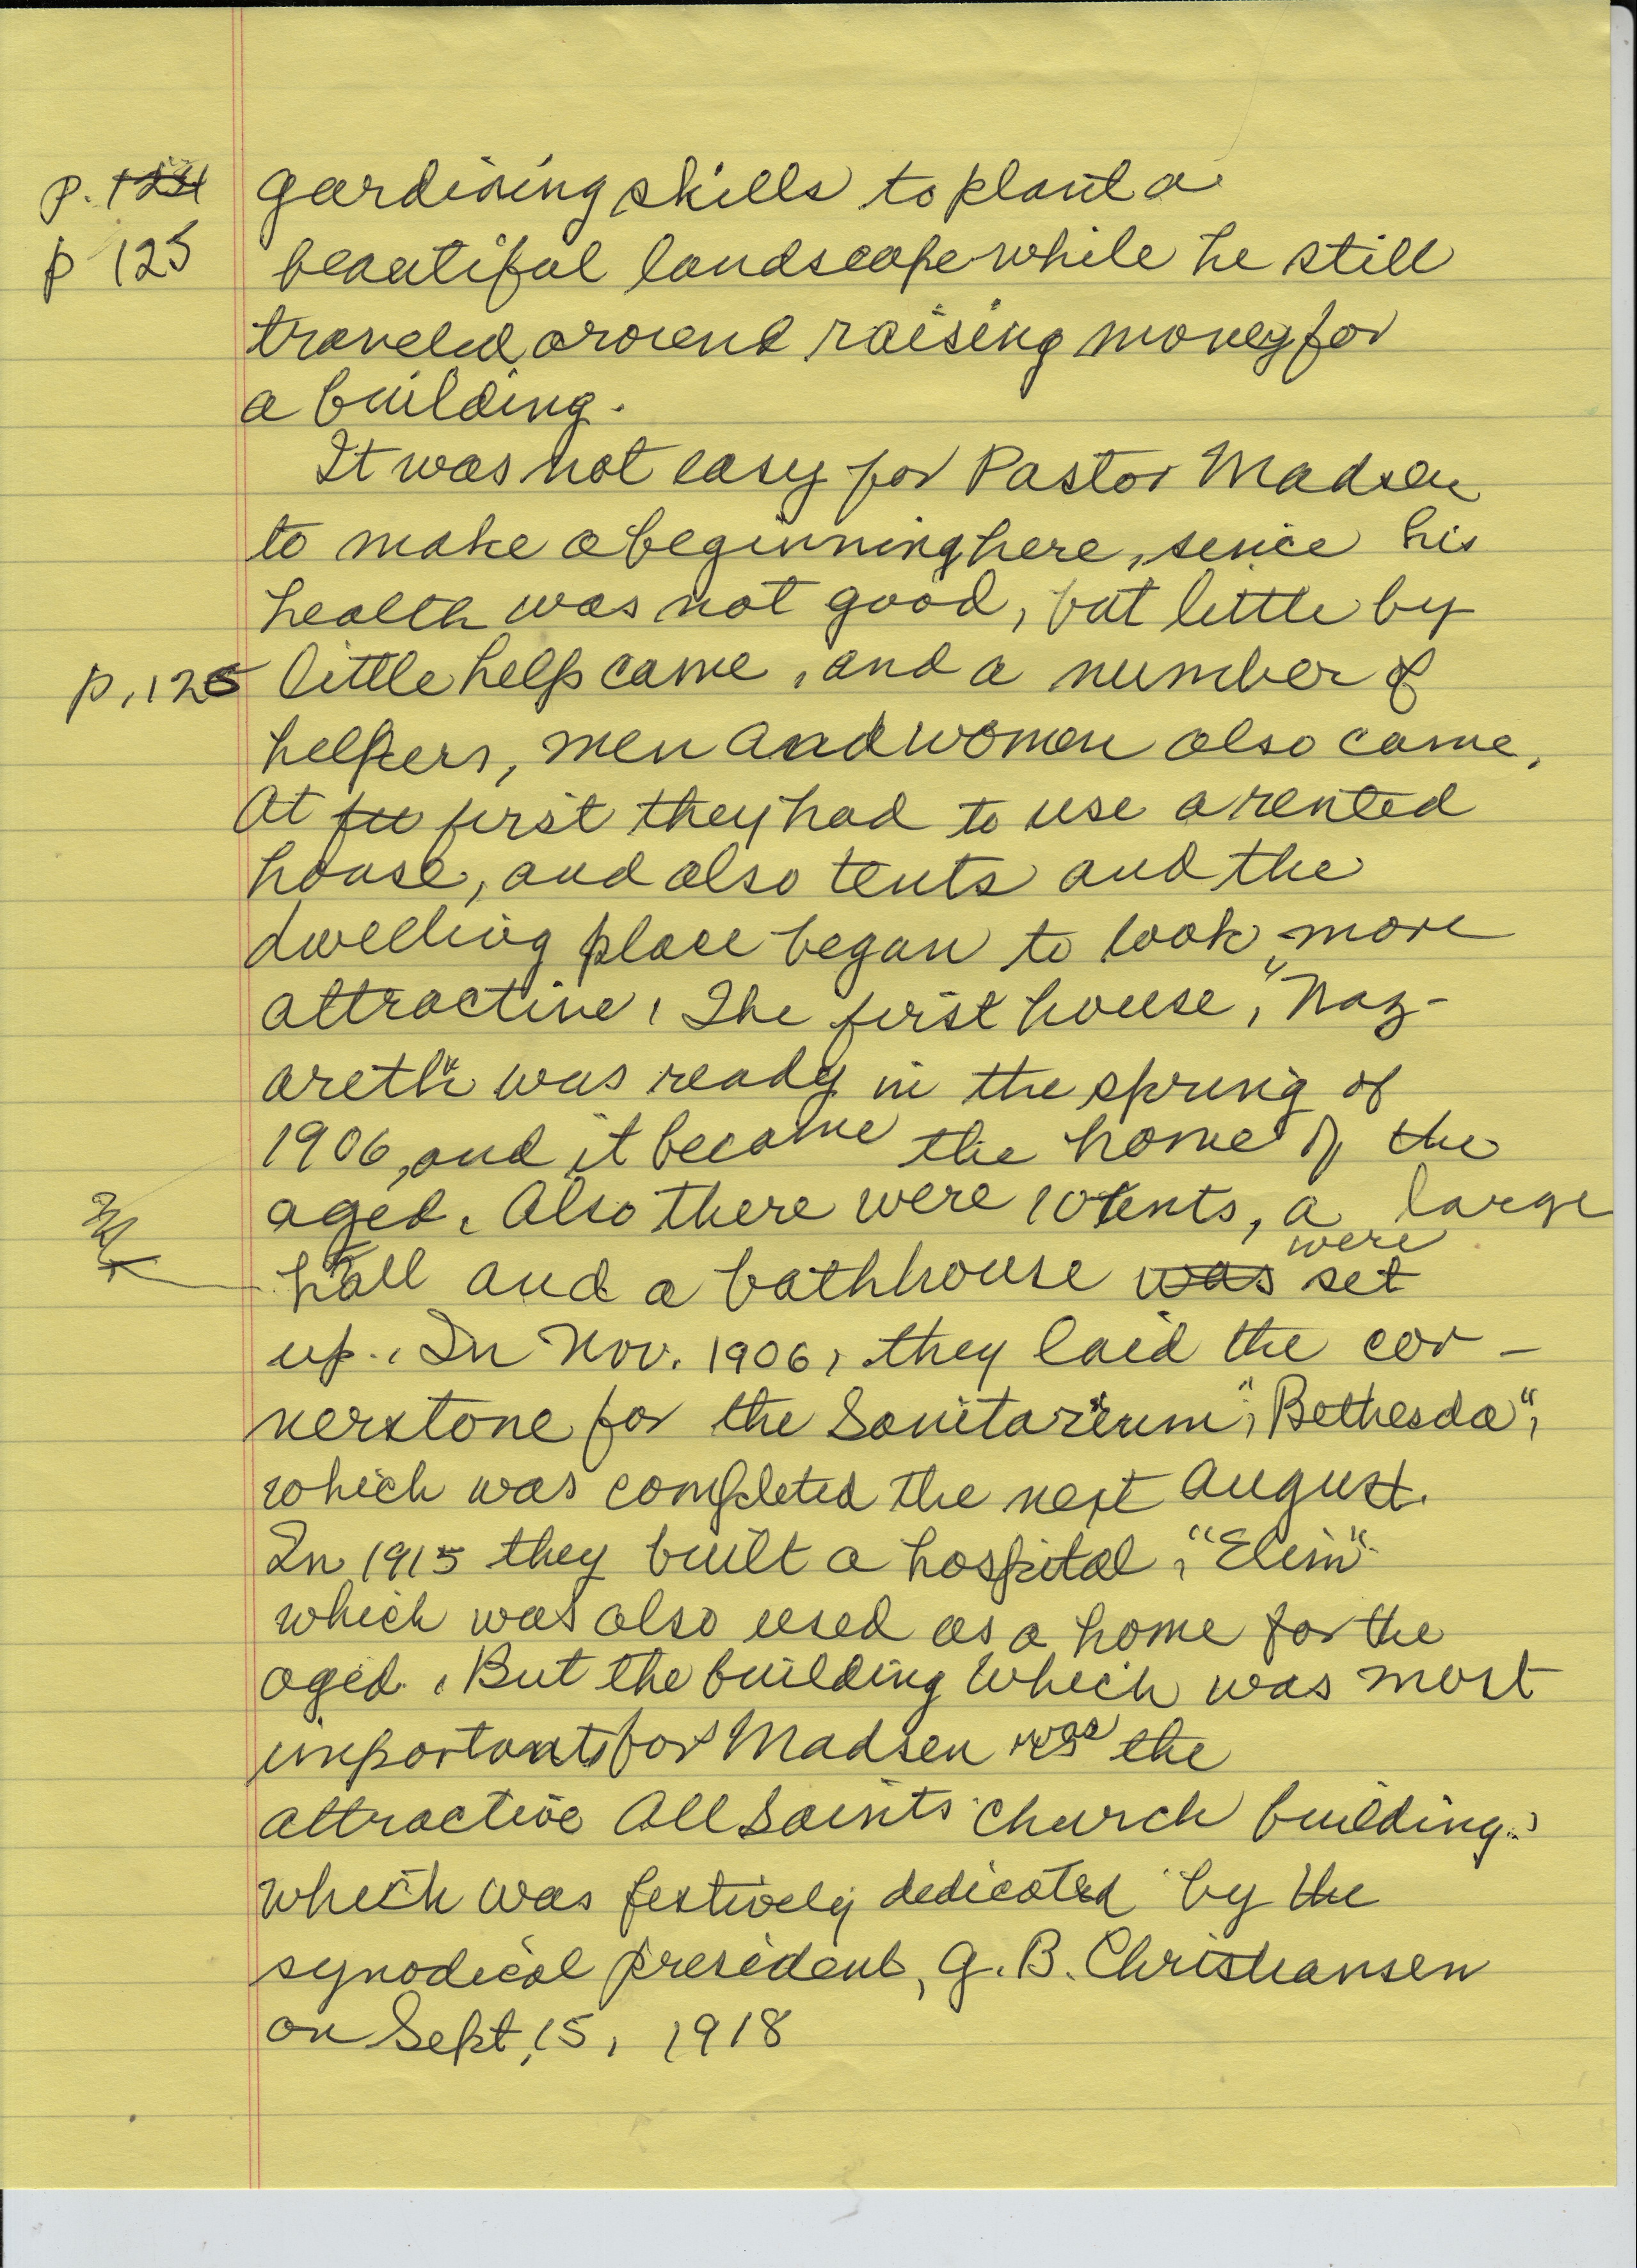 p. 124 gardining skills to plant a
p 125 beautiful landscape while he still
traveled around raising money for
a building.
It was not easy for Pastor Madsen
to make a beginning here, since his
health was not good, but little by
p. 125 little help came, and a number of
helpers, men and women also came.
At first they had to use a rented
house, and also tents and the
dwelling place began to look more
attractive. The first house, "Naz-
areth" was ready in the spring of
1906, and it became the home of the
aged. Also there were 10 tents, a large
were
hall and a bathhouse was set
up. In Nov. 1906, they laid the cor-
nerstone for the Sanitarium, "Bethesda",
which was completed the next August.
In 1915 they built a hospital, "Elim"
which was also used as a home for the
aged. But the building which was most
important for Madsen was the
attractive All Saints church building,
which was festively dedicated by the
synodical president, G. B. Christiansen
on Sept, 15, 1918